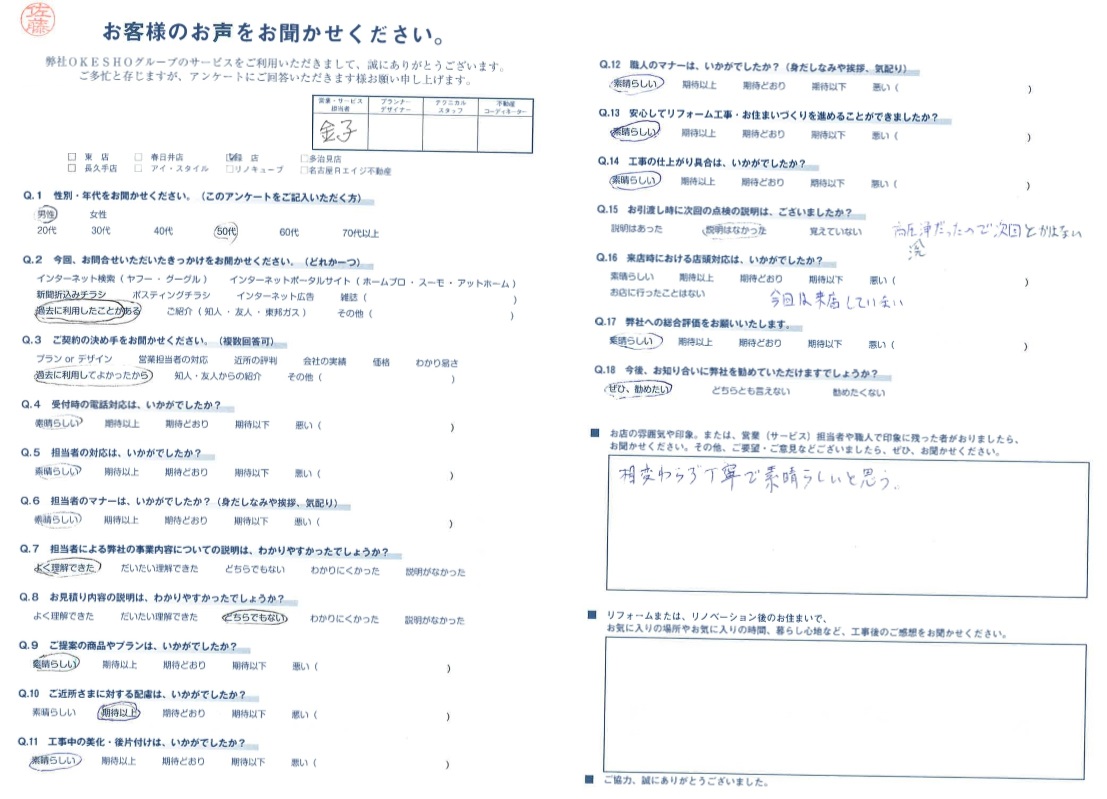 佐藤
お客様のお声をお聞かせください。
弊社OKESHOグループのサービスをご利用いただきまして、誠にありがとうございます。
ご多忙と存じますが、アンケートにご回答いただきます様お願い申し上げます。
営業・サービス担当者 プランナーデザイナー テクニカルスタッフ 不動産コーディネーター
金子
□ 東 店 □ 春日井店 ☑緑 店 □多治見店
□ 長久手店 □ アイ・スタイル □リノキューブ □名古屋Rエイジ不動産
Q.1 性別・年代をお聞かせください。（このアンケートをご記入いただく方）
男性 女性
20代 30代 40代 50代 60代 70代以上
Q.2 今回、お問合せいただいたきっかけをお聞かせください。（どれか一つ）
インターネット検索（ ヤフー・グーグル ） インターネットポータルサイト（ ホームプロ・スーモ・アットホーム ）
新聞折込みチラシ ポスティングチラシ インターネット広告 雑誌（ ）
過去に利用したことがある ご紹介（ 知人・友人・東邦ガス ） その他（ ）
Q.3 ご契約の決め手をお聞かせください。（複数回答可）
プラン or デザイン 営業担当者の対応 近所の評判 会社の実績 価格 わかり易さ
過去に利用してよかったから 知人・友人からの紹介 その他（ ）
Q.4 受付時の電話対応は、いかがでしたか？
素晴らしい 期待以上 期待どおり 期待以下 悪い（ ）
Q.5 担当者の対応は、いかがでしたか？
素晴らしい 期待以上 期待どおり 期待以下 悪い（ ）
Q.6 担当者のマナーは、いかがでしたか？（身だしなみや挨拶、気配り）
素晴らしい 期待以上 期待どおり 期待以下 悪い（ ）
Q.7 担当者による弊社の事業内容についての説明は、わかりやすかったでしょうか？
よく理解できた だいたい理解できた どちらでもない わかりにくかった 説明がなかった
Q.8 お見積り内容の説明は、わかりやすかったでしょうか？
よく理解できた だいたい理解できた どちらでもない わかりにくかった 説明がなかった
Q.9 ご提案の商品やプランは、いかがでしたか？
素晴らしい 期待以上 期待どおり 期待以下 悪い（ ）
Q.10 ご近所さまに対する配慮は、いかがでしたか？
素晴らしい 期待以上 期待どおり 期待以下 悪い（ ）
Q.11 工事中の美化・後片付けは、いかがでしたか？
素晴らしい 期待以上 期待どおり 期待以下 悪い（ ）
Q.12 職人のマナーは、いかがでしたか？（身だしなみや挨拶、気配り）
素晴らしい 期待以上 期待どおり 期待以下 悪い（ ）
Q.13 安心してリフォーム工事・お住まいづくりを進めることができましたか？
素晴らしい 期待以上 期待どおり 期待以下 悪い（ ）
Q.14 工事の仕上がり具合は、いかがでしたか？
素晴らしい 期待以上 期待どおり 期待以下 悪い（ ）
Q.15 お引渡し時に次回の点検の説明は、ございましたか？
説明はあった 説明はなかった 覚えていない 高圧洗浄だったので次回とかはない
Q.16 来店時における店頭対応は、いかがでしたか？
素晴らしい 期待以上 期待どおり 期待以下 悪い（ ）
お店に行ったことはない 今回は来店していない
Q.17 弊社への総合評価をお願いいたします。
素晴らしい 期待以上 期待どおり 期待以下 悪い（ ）
Q.18 今後、お知り合いに弊社を勧めていただけますでしょうか？
ぜひ、勧めたい どちらとも言えない 勧めたくない
■ お店の雰囲気や印象。または、営業（サービス）担当者や職人で印象に残った者がおりましたら、
お聞かせください。その他、ご要望・ご意見などございましたら、ぜひ、お聞かせください。
相変わらず丁寧で素晴らしいと思う。
■ リフォームまたは、リノベーション後のお住まいで、
お気に入りの場所やお気に入りの時間、暮らし心地など、工事後のご感想をお聞かせください。
■ ご協力、誠にありがとうございました。